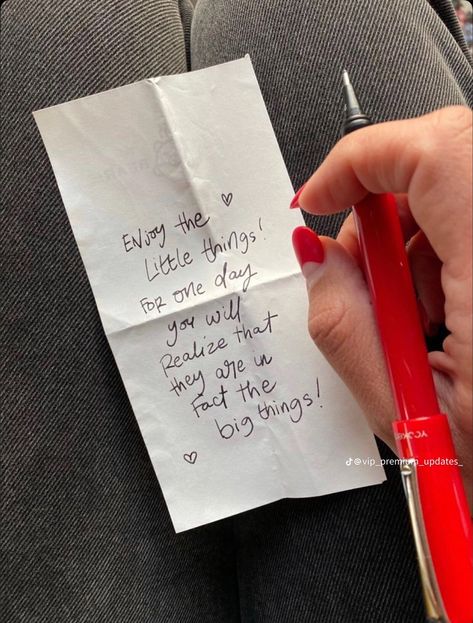 ENjoy the
Little things!
FOR one day
you will
Realize that
they are in
Fact the
big things!
@vip_premium_updates_